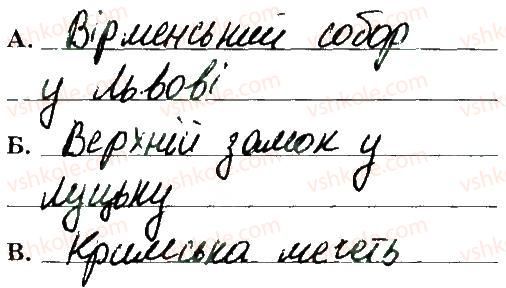 А. Вірменський собор
у Львові
Б. Верхній замок у
Луцьку
В. Кримська мечеть